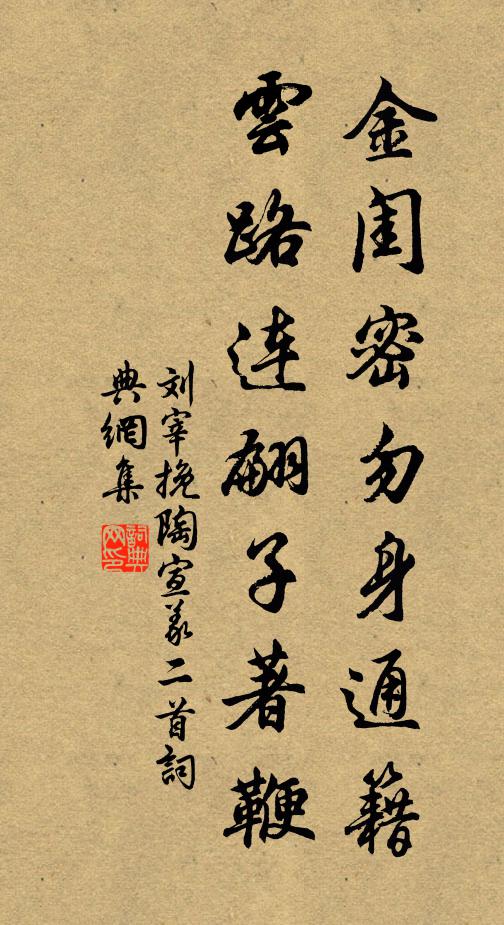 金闺密勿身通籍
雲路連翩子著鞭
刘宰挽陶宣義二首詞
典網集
詞典
网印